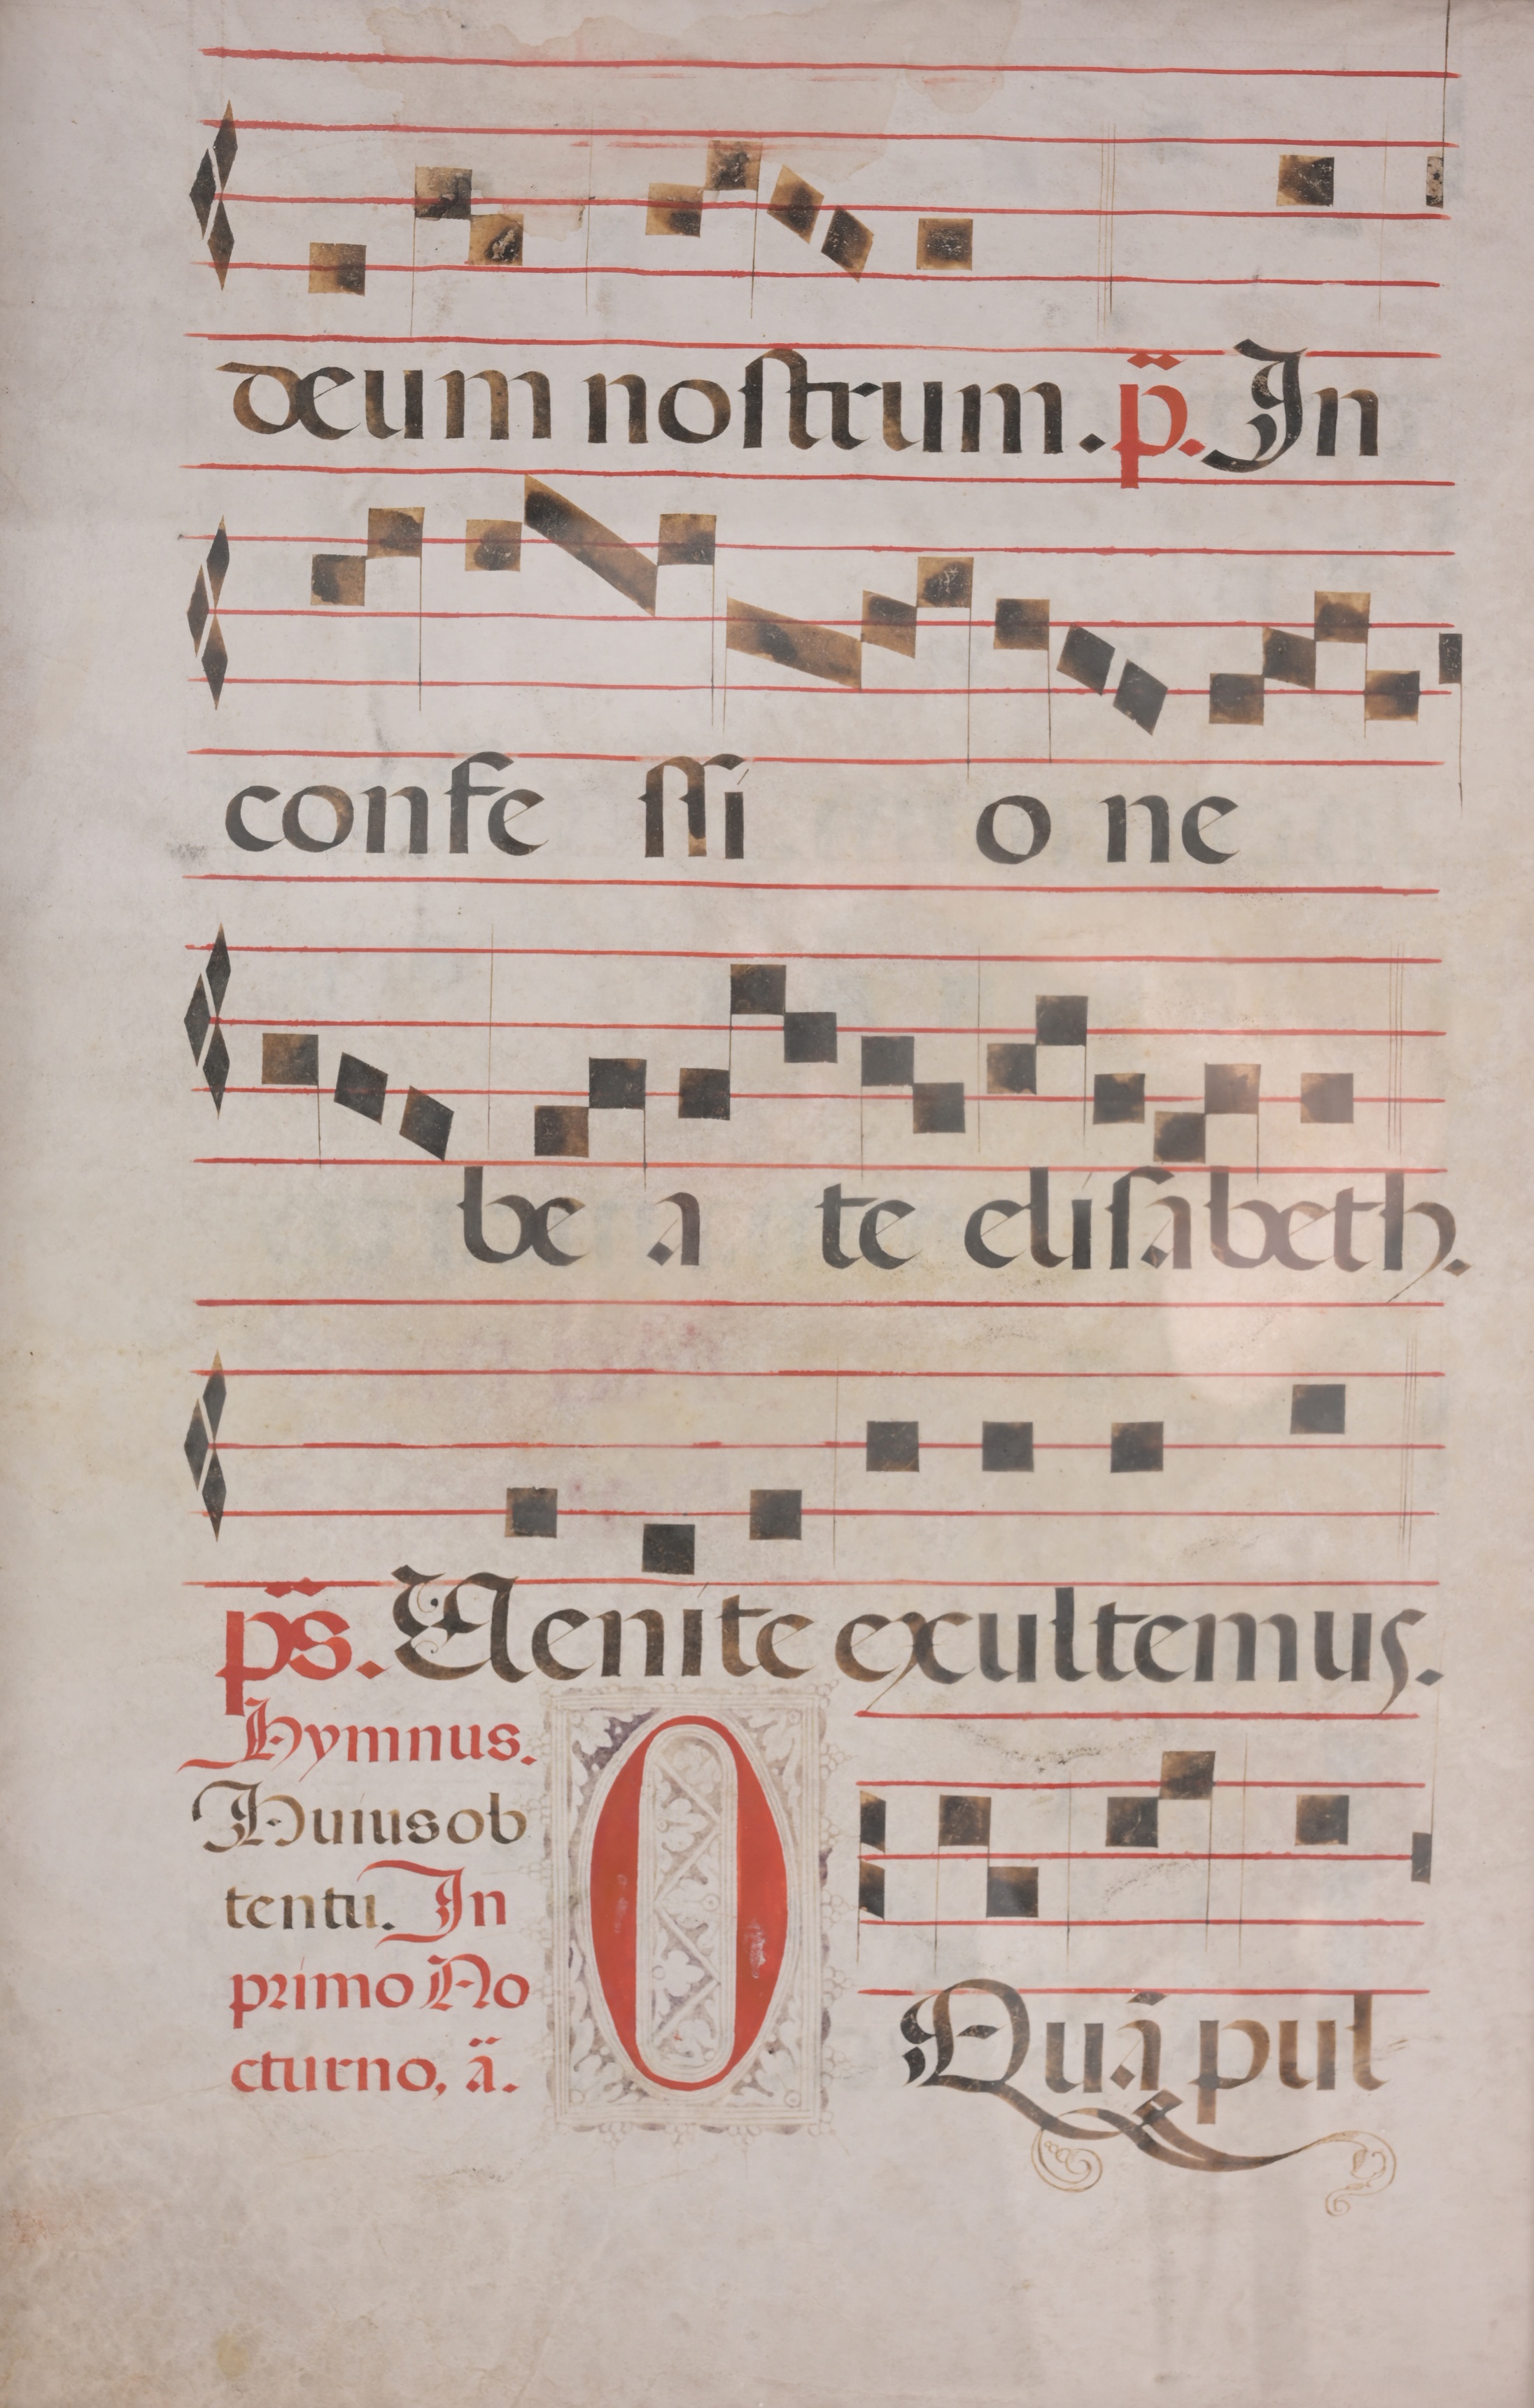 deum nostrum. p̈. In
confe ssi o ne
be a te elisabeth.
ps̈. Uenite exultemus.
Hymnus.
Huius ob
tentu. In
primo No
cturno, ä.
O Quã pul